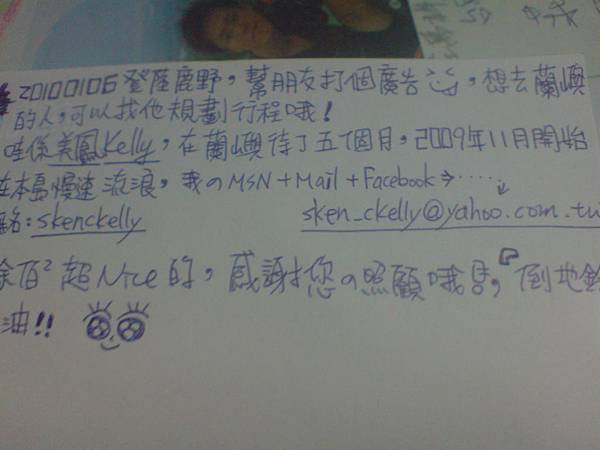 20100106 登陸鹿野，幫朋友打個廣告，想去蘭嶼
的人，可以找他規劃行程哦！
哇係美鳳Kelly，在蘭嶼待了五個月，2009年11月開始
在本島慢速流浪，我のMSN+Mail+Facebook→‧‧‧‧‧
名：skenckelly sken_ckelly@yahoo.com.tw
佰² 超Nice的，感謝您の照顧哦！倒地鈴
油!!